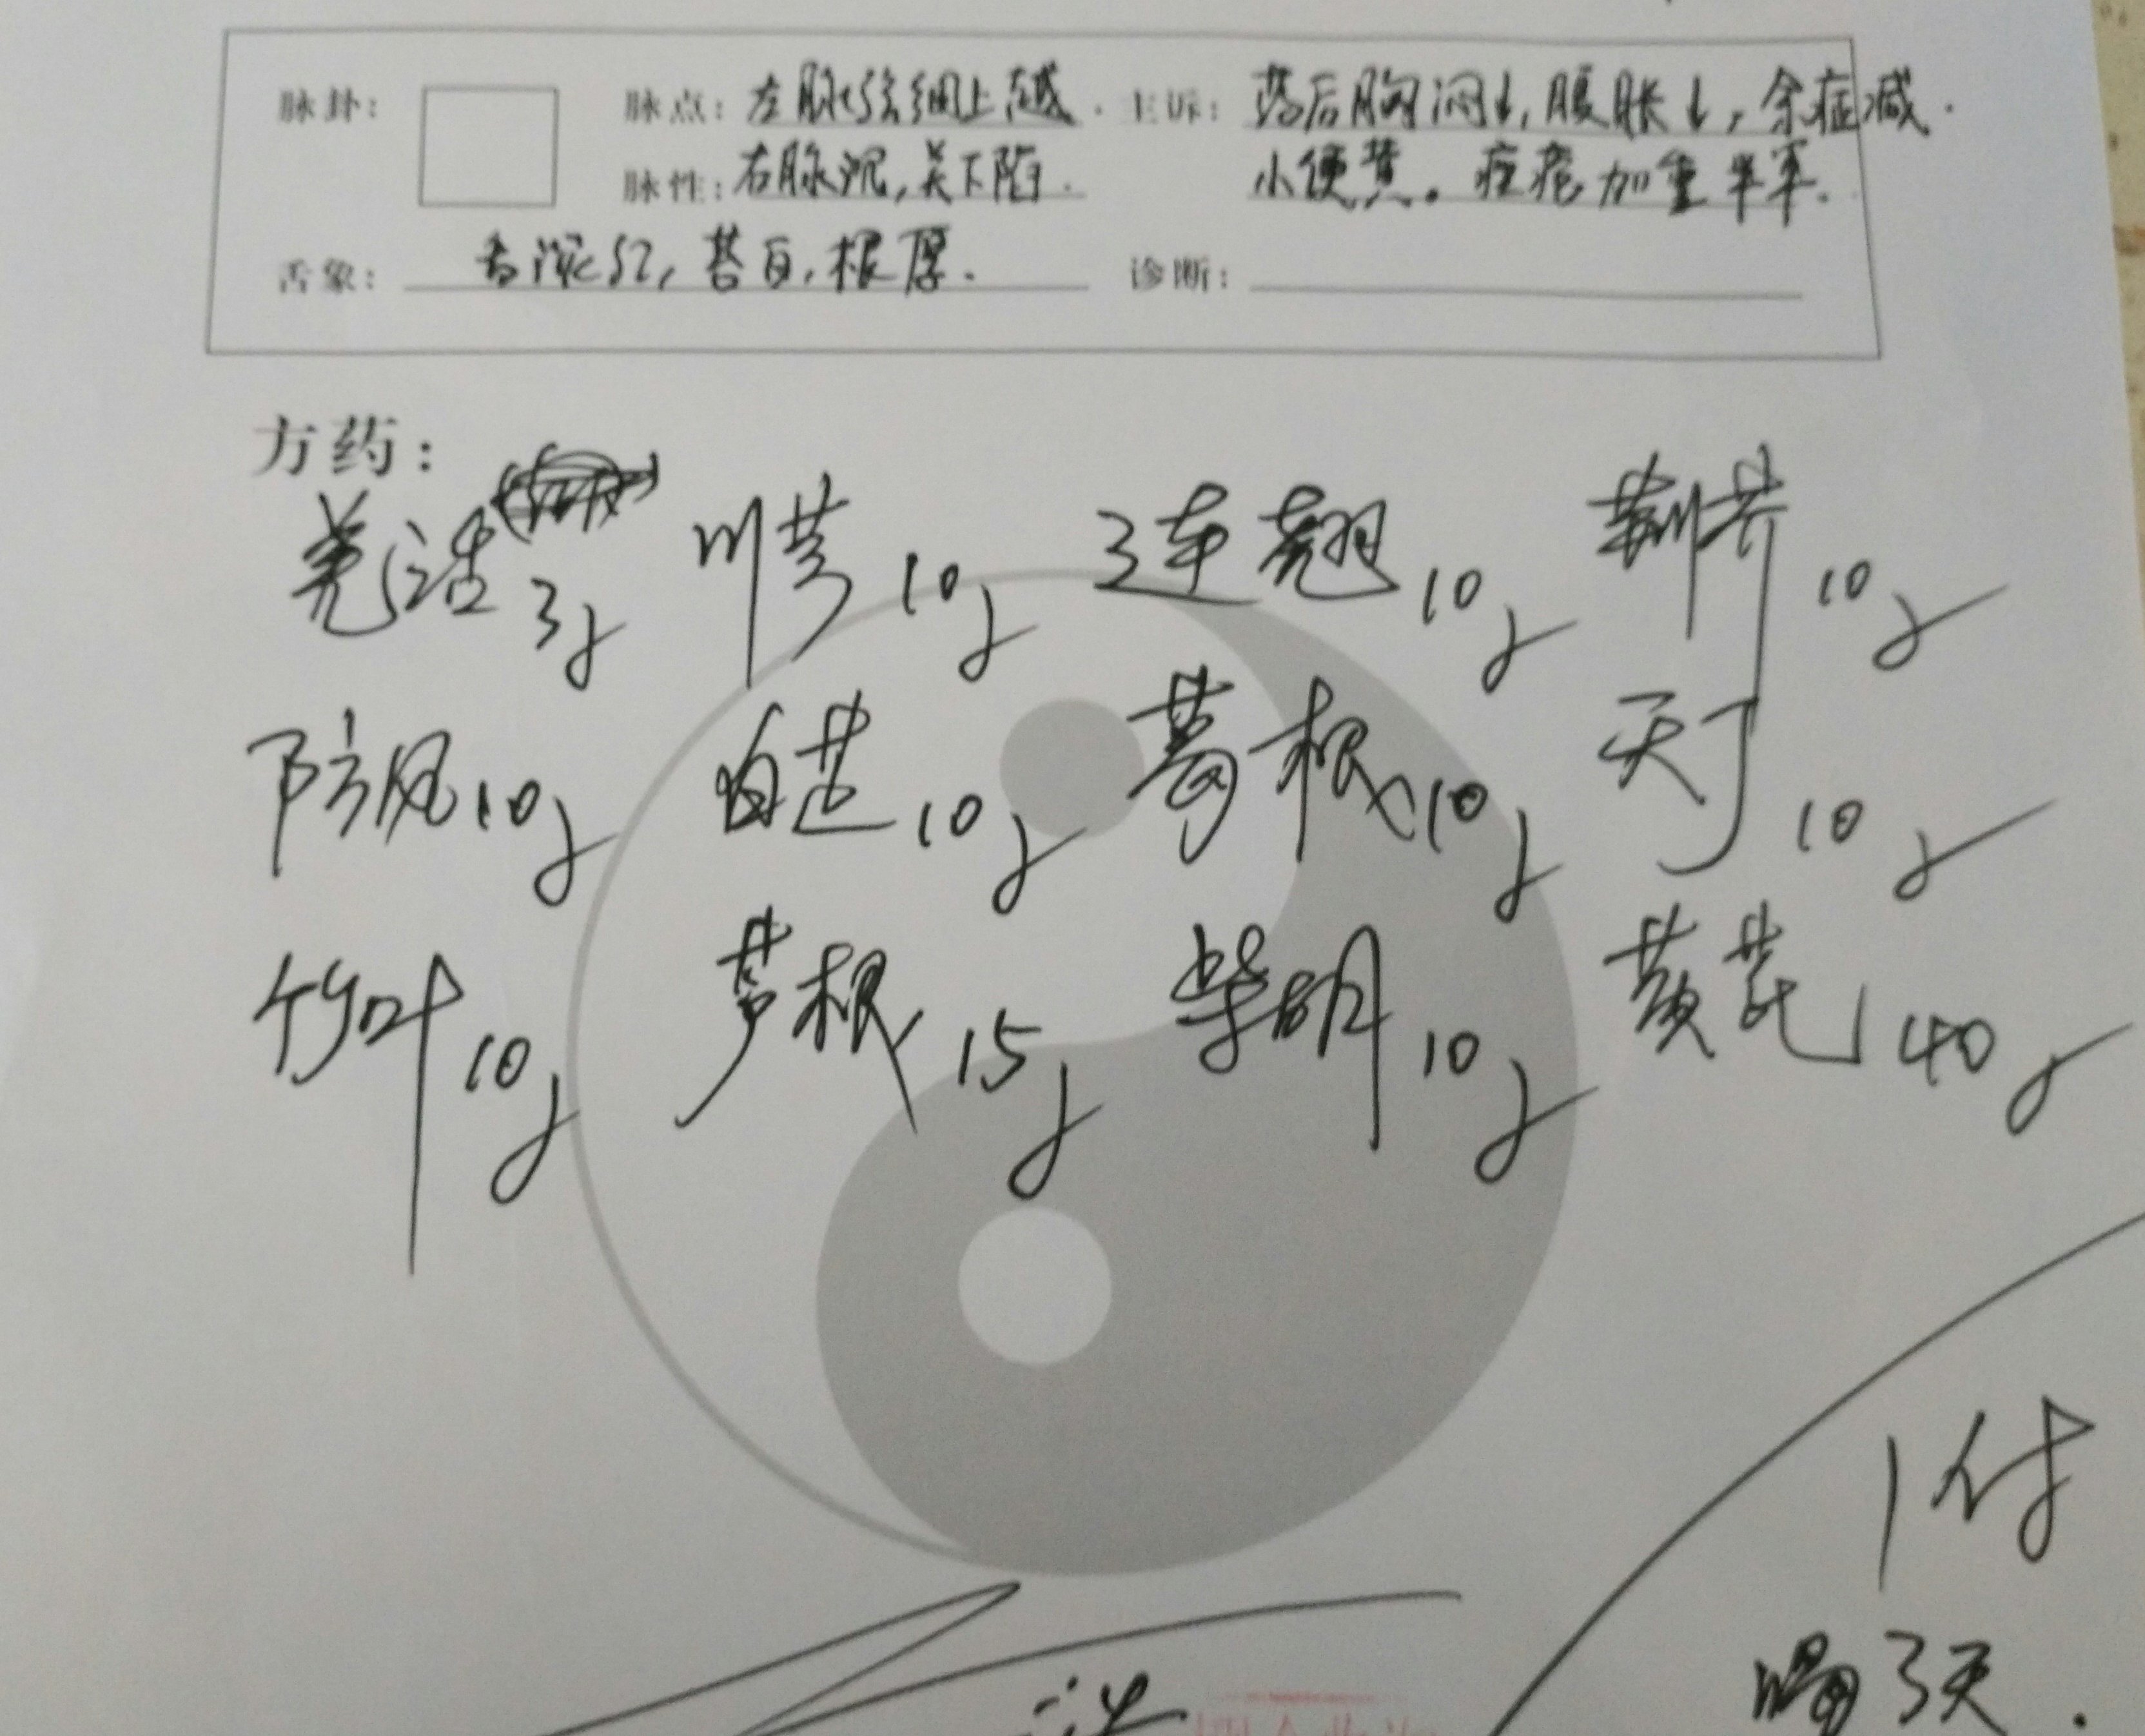 脉卦： 脉点：左脉弦细上越． 主诉：药后胸闷↓，腹胀↓，余症减．
脉性：右脉沉，关下陷． 小便黄。痤疮加重半年．
舌象：舌淡红，苔白，根厚． 诊断：
方药：
羌活3g 川芎10g 连翘10g 荆芥10g
防风10g 白芷10g 葛根10g 天丁10g
竹叶10g 芦根15g 柴胡10g 黄芪40g
1付
喝3天．